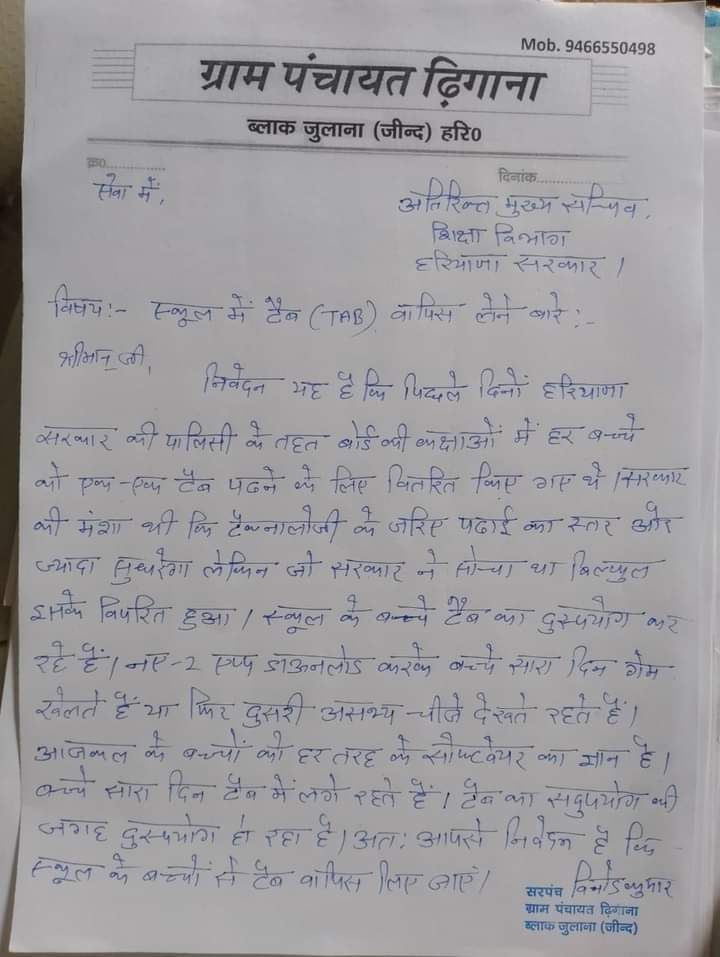 Mob. 9466550498
ग्राम पंचायत ढ़िगाना
ब्लाक जुलाना (जीन्द) हरि०
क्र०..............
दिनांक..................
सेवा में,
अतिरिक्त मुख्य सचिव,
शिक्षा विभाग
हरियाणा सरकार।
विषय:- स्कूल में टैब (TAB) वापिस लेने बारे:-
श्रीमान् जी,
निवेदन यह है कि पिछले दिनों हरियाणा
सरकार की पालिसी के तहत बोर्ड की कक्षाओं में हर बच्चे
को एक-एक टैब पढने के लिए वितरित किए गए थे। सरकार
की मंशा थी कि टैक्नालोजी के जरिए पढाई का स्तर और
ज्यादा सुधरेगा लेकिन जो सरकार ने सोचा था बिल्कुल
इसके विपरित हुआ। स्कूल के बच्चे टैब का दुरुपयोग कर
रहे हैं। नए-2 एप्प डाऊनलोड करके बच्चे सारा दिन गेम
खेलते हैं या फिर दुसरी असभ्य चीजे देखते रहते हैं।
आजकल के बच्चों को हर तरह के सौफ्टवेयर का ज्ञान है।
बच्चे सारा दिन टैब में लगे रहते हैं। टैब का सदुपयोग की
जगह दुरुपयोग हो रहा है। अत: आपसे निवेदन है कि
स्कूल के बच्चों से टैब वापिस लिए जाएं।
सरपंच विनोद कुमार
ग्राम पंचायत ढ़िगाना
ब्लाक जुलाना (जीन्द)